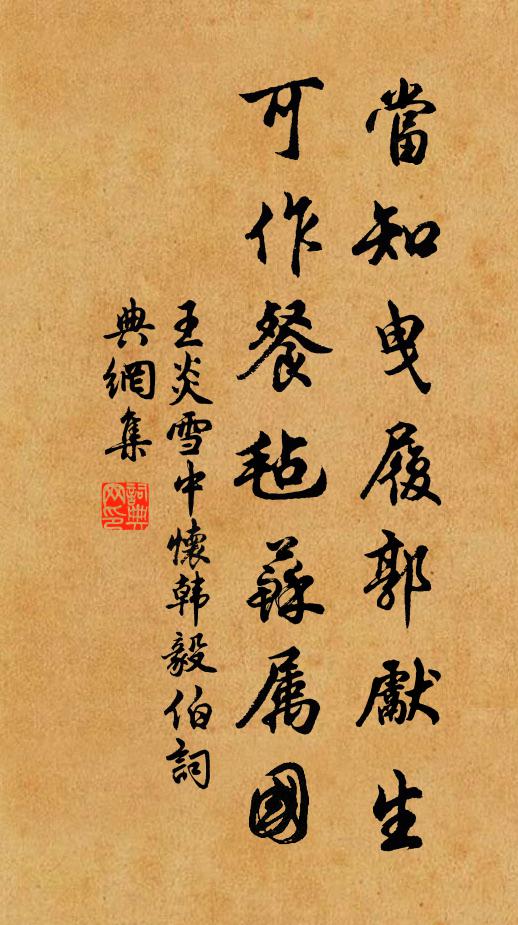 當知曳履郭獻生
可作餐毡蘇属國
王炎雪中懷韩毅伯詞
典網集
詞典
网印